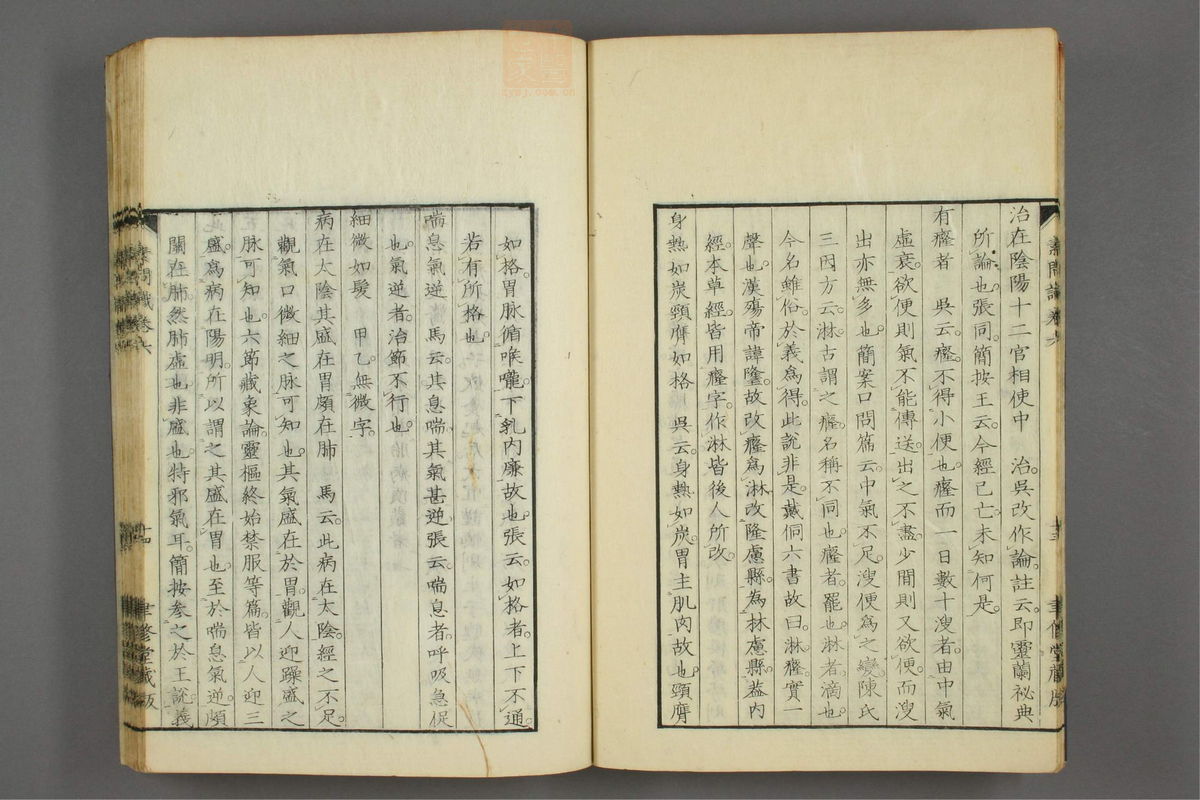 治在陰陽十二官相使中　治吳改作論註云即靈蘭祕典
所論也張同簡按王云今經已亡未知何是
有癃者　吳云癃不得小便也癃而一日數十溲者由中氣
虛衰欲便則氣不能傳送出之不盡少間則又欲便而溲
出亦無多也簡案口問篇云中氣不足溲便爲之變陳氏
三因方云淋古謂之癃名稱不同也癃者罷也淋者滴也
今名雖俗於義爲得此說非是戴侗六書故曰淋癃實一
聲也漢殤帝諱隆故改癃爲淋改隆慮縣為林慮縣葢内
經本草經皆用癃字作淋皆後人所改
身熱如炭頸膺如格　吳云身熱如炭胃主肌肉故也頸膺
素問識卷六
聿修堂藏版
如格胃脉循喉嚨下乳内廉故也張云如格者上下不通
若有所格也
喘息氣逆　馬云其息喘其氣甚逆張云喘息者呼吸急促
也氣逆者治節不行也
細微如髮　甲乙無微字
病在太陰其盛在胃頗在肺　馬云此病在太陰經之不足
觀氣口微細之脉可知也其氣盛在於胃觀人迎躁盛之
脉可知也六節藏象論靈樞終始禁服等篇皆以人迎三
盛爲病在陽明所以謂之其盛在胃也至於喘息氣逆頗
關在肺然肺虛也非盛也特邪氣耳簡按參之於王說義
素問識卷六
十四
聿修堂藏版